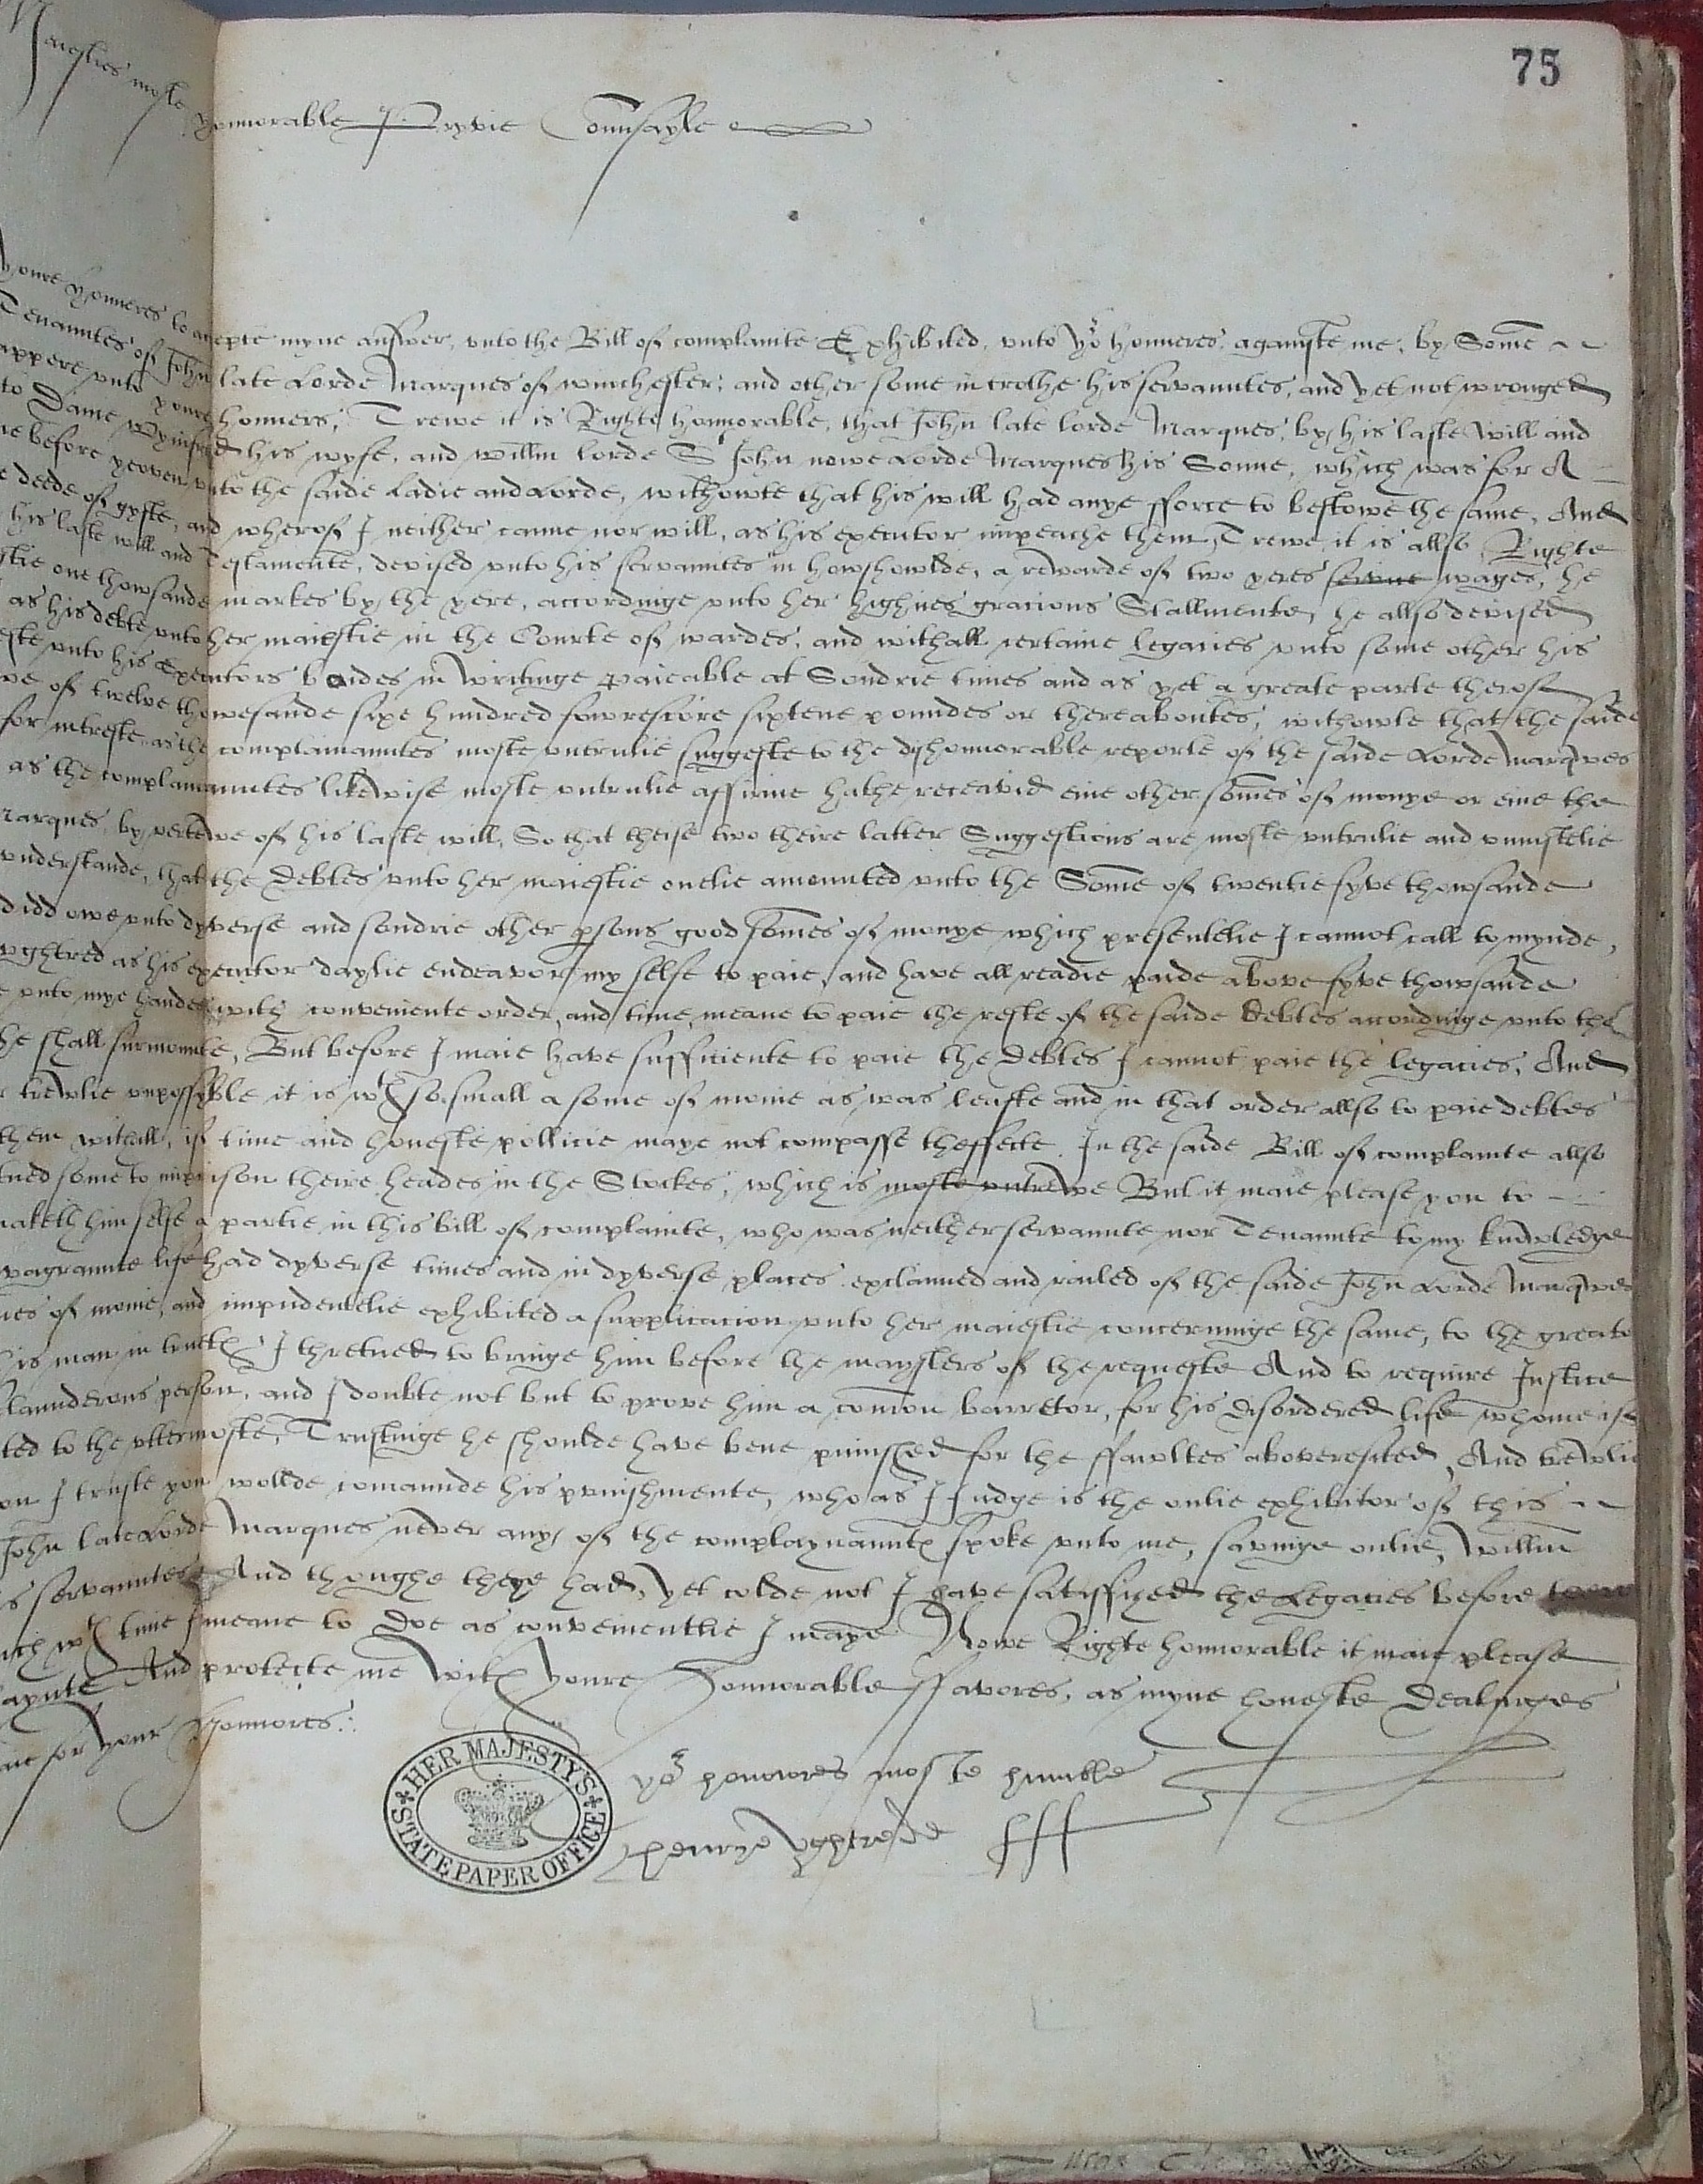 75
Maiesties moste honnorable Pryvie Counsayle
youre honneres to accepte myne answer, unto the Bill of complainte Exhibited, unto yor honneres againste me, by Some
Tenauntes of John late Lorde Marques of winchester, and other some in trothe his servauntes, and yet not wronged
appere unto youre honners, Trewe it is Righte honnorable, that John late lorde Marques, by his laste will and
to Dame Wynifred his wyfe, and willm lorde St John nowe Lorde Marques his Sonne, which was for A
before yeoven unto the saide Ladie and Lorde, withowte that his will had anye fforce to bestowe the same, And
deede of gyfte, and wherof I neither canne nor will, as his executor impeache them, Trewe it is allso Righte
his laste will and Testamente, devised unto his servauntes in howshowlde, a rewarde of two yeres service wages, he
one thowsande markes by the yere, accordinge unto her highnes gracious Stallmente, he allso devised
as his debte unto her maiestie in the Courte of wardes, and withall certaine legacies unto some other his
unto his Executors bondes in writinge paieable at Sondrie times and as yet a greate parte therof
of twelve thowesande sixe hundred fowrescore sixtene poundes or thereaboutes, withowte that the saide
for intreste, as the complainauntes moste untrulie suggeste to the dishonnorable reporte of the saide Lorde Marques
as the complainauntes likewise moste untrulie affirme hathe receavid enie other somes of monye or enie the
Marques, by vertewe of his laste will, So that theise two theire latter Suggestions are moste untrulie and uniustelie
understande, that the debtes unto her maiestie onelie amounted unto the Some of twentie fyve thowsande
didd owe unto dyverse and sondrie other psons good somes of monye which presentelie I cannot call to mynde,
ughtred as his executor daylie endeavor my selfe to paie, and have all readie paide above fyve thowsande
unto mye handes, with conveniente order, and time, meane to paie the reste of the saide debtes accordinge unto the
he shall surmounte, But before I maie have sufficiente to paie the debtes I cannot paie the legacies, And
trewlie unpossyble it is wth so small a some of monie as was lefte and in that order allso to paie debtes
them withall, if time and honeste pollicie maye not compasse theffecte. In the saide Bill of complainte allso
some to imprison theire heades in the Stockes, which is moste untrewe But it maie please you to
maketh him selfe a partie in this bill of complainte, who was neither servaunte nor Tenaunte to my knowledge
vagraunte life had dyverse times and in dyverse places exclamed and railed of the saide John Lorde Marques
of monie, and impudentelie exhibited a supplicacion unto her maiestie concerninge the same, to the greate
is man in I thretned to bringe him before the maysters of the requeste And to require Justice
slaunderous person, and I doubte not but to prove him a comon barretor, for his disordered life whome if
to the uttermoste, Trustinge he shoulde have bene punisshed for the ffawltes aboverecited, And trewlie
I truste you wollde comaunde his punishmente, who as I Judge is the onlie exhibitor of this
John late Lorde Marques never any of the complaynaunts spoke unto me, savinge onlie, Willm
servauntes And thoughe theye had, yet colde not I have satissfyed the Legacies before
wth time I meane to doe as convenientlie I maye Nowe Righte honnorable it maie please
And protecte me with youre Honnorable ffavores, as myne honeste dealinges
for your Honnores.
yor honnores moste humble
henrye ughtredd
HER MAJESTY'S STATE PAPER OFFICE